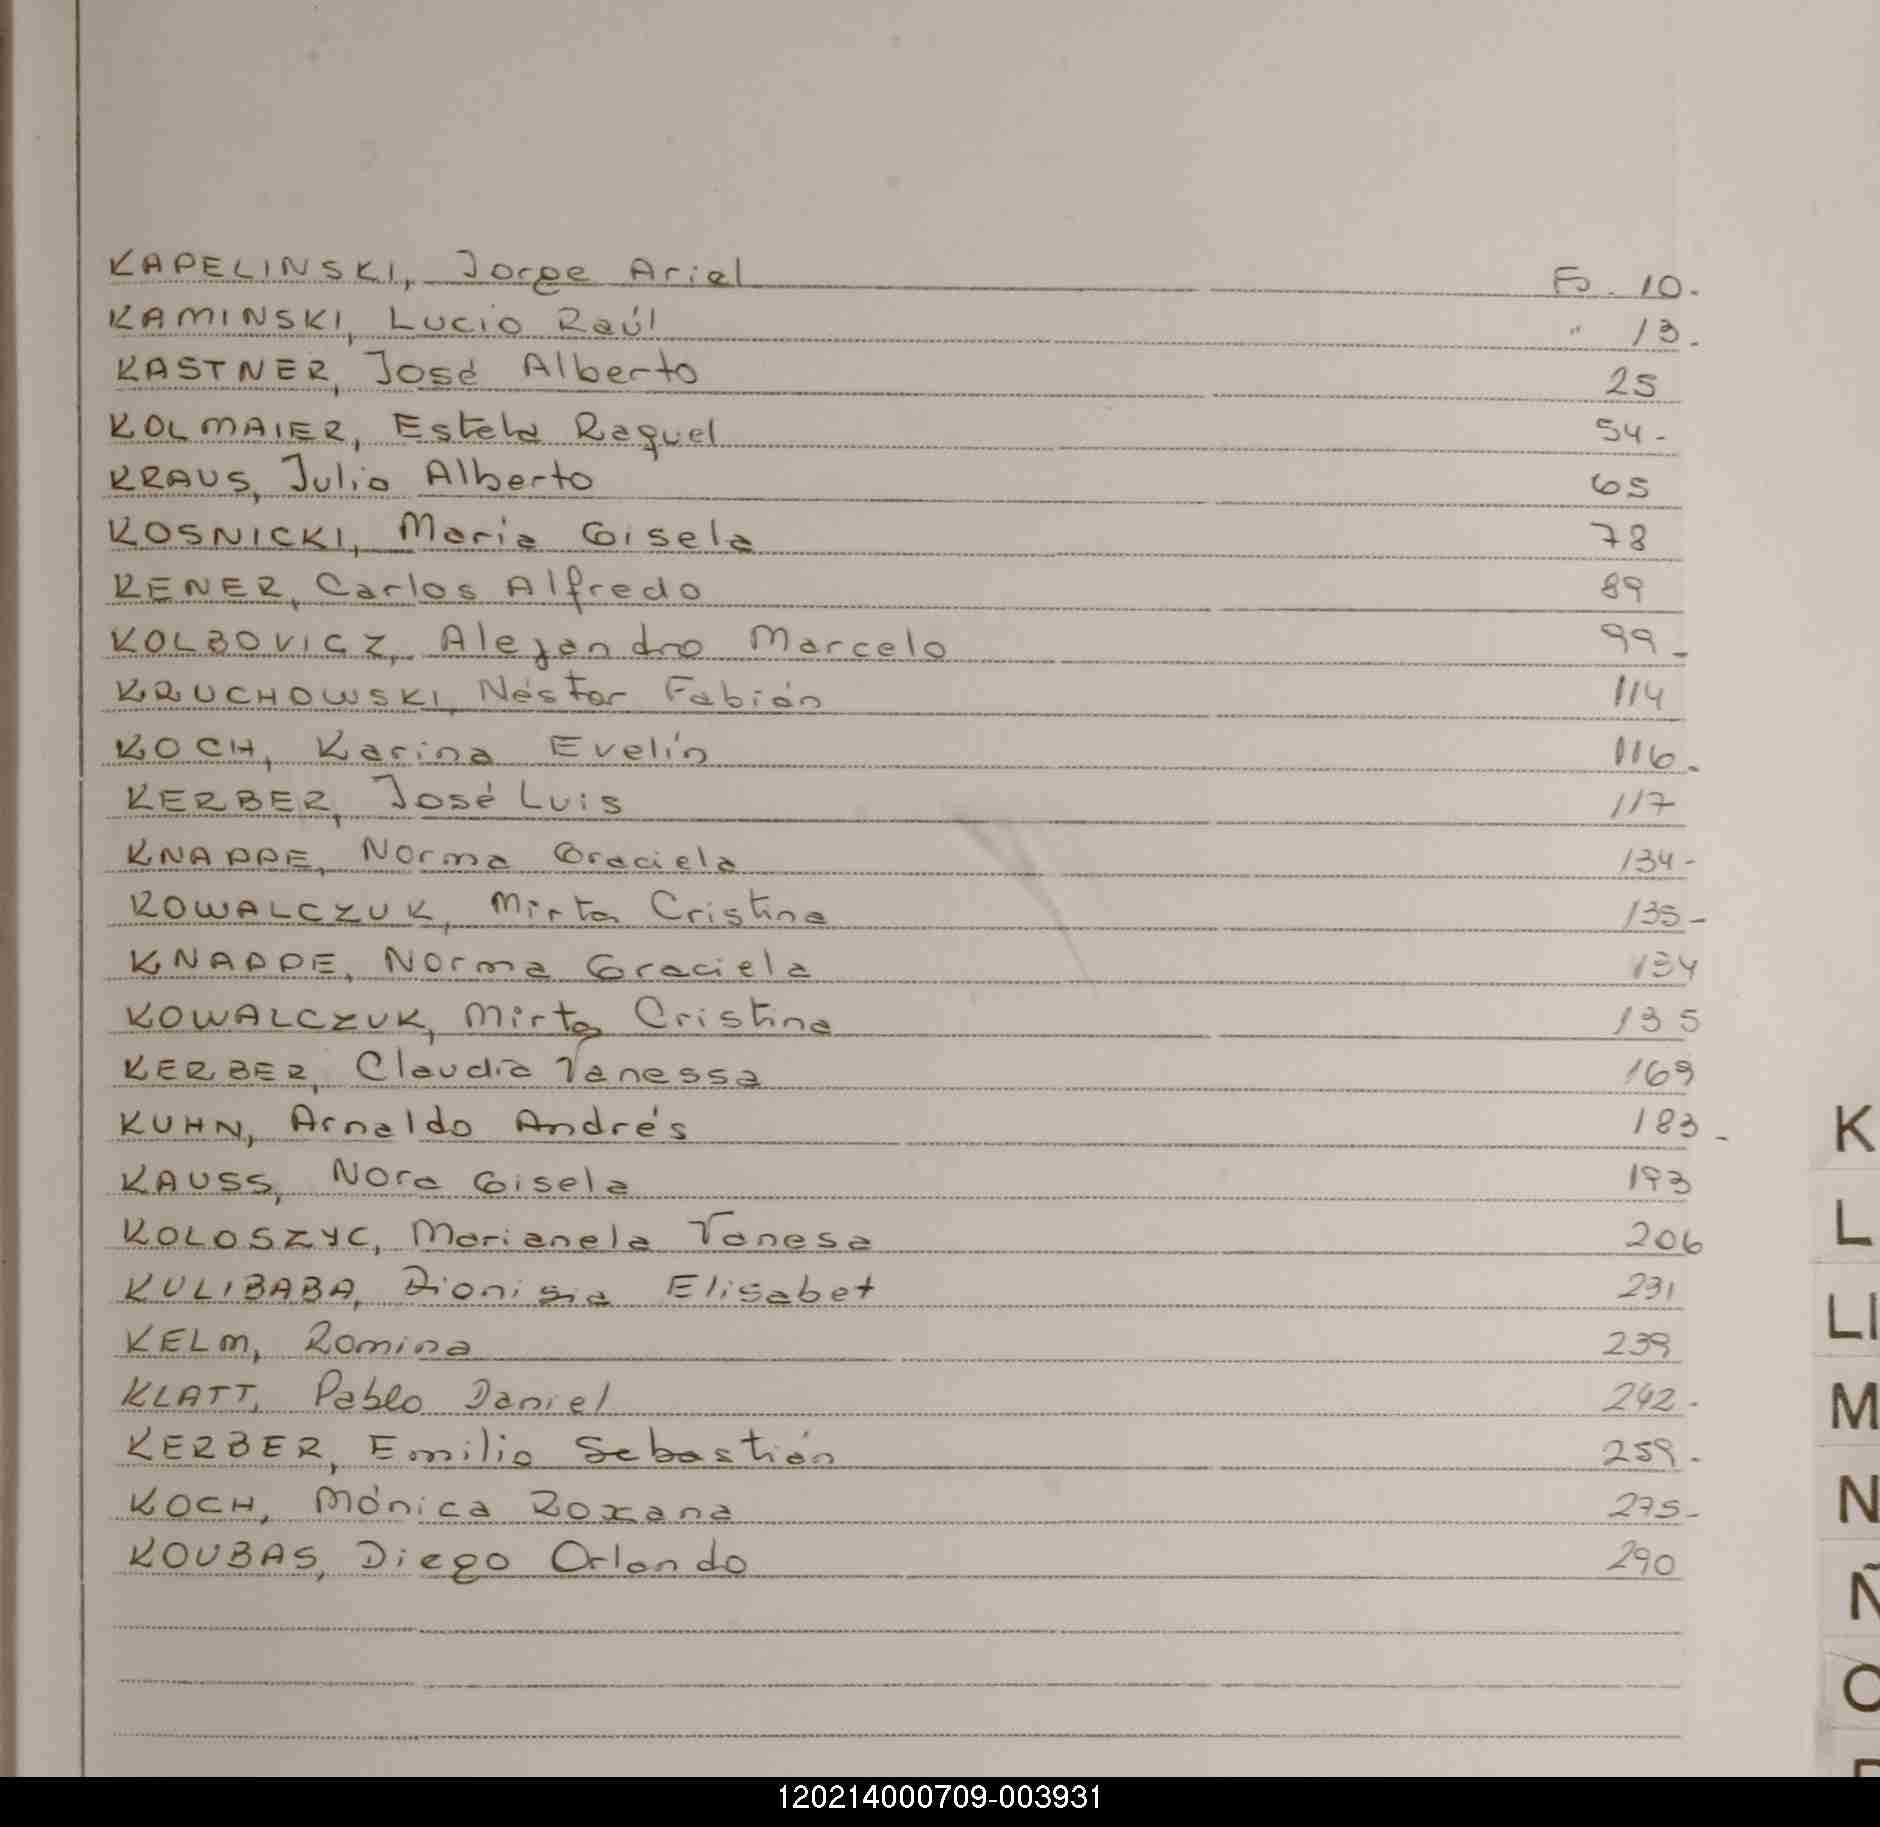 KAPELINSKI, Jorge Ariel Fo. 10.
KAMINSKI, Lucio Raúl " 13.
KASTNER, José Alberto 25
KOLMAIER, Estela Raquel 54-
KRAUS, Julio Alberto 65
KOSNICKI, María Gisela 78
KENER, Carlos Alfredo 89
KOLBOVICZ, Alejandro Marcelo 99-
KRUCHOWSKI, Néstor Fabián 114
KOCH, Karina Evelín 116.
KERBER, José Luis 117
KNAPPE, Norma Graciela 134-
KOWALCZUK, Mirta Cristina 135-
KNAPPE, Norma Graciela 134
KOWALCZUK, Mirta Cristina 135
KERBER, Claudia Vanessa 169
KUHN, Arnaldo Andrés 183-
KAUSS, Nora Gisela 193
KOLOSZYC, Marianela Vanesa 206
KULIBABA, Dionisia Elisabet 231
KELM, Romina 239
KLATT, Pablo Daniel 242-
KERBER, Emilio Sebastián 259-
KOCH, Mónica Roxana 275-
KOUBAS, Diego Orlando 290
K
L
Ll
M
N
Ñ
O
120214000709-003931